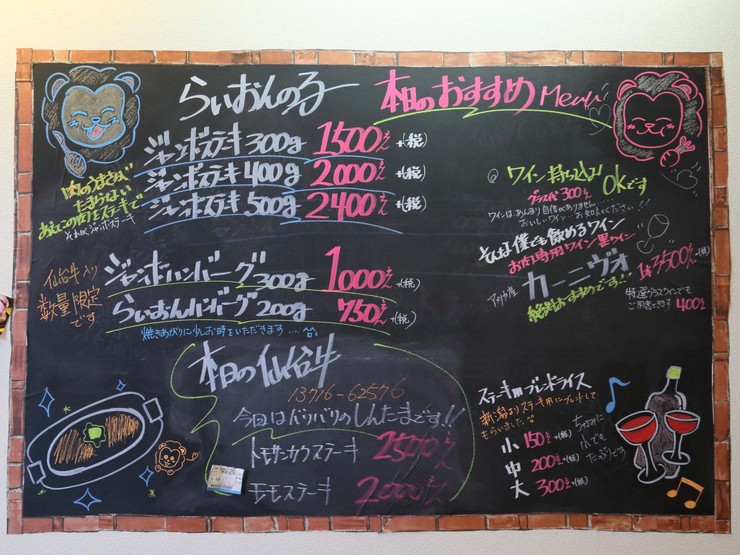 らいおんのる 本日のおすすめ Menu
ジャンボステーキ 300g 1500えん +(税)
ジャンボステーキ 400g 2000えん +(税)
ジャンボステーキ 500g 2400えん +(税)
肉のうまさが
たまらない
あえてこの肉をステーキで
それがジャンボステーキ
仙台牛入り
数量限定
です
ジャンボハンバーグ 300g 1000えん +(税)
らいおんハンバーグ 200g 750えん +(税)
焼きあがりに少しお時をいただきます…
本日の仙台牛
13716-62576
今回はバリバリのしんたまです!!
トモサンカクステーキ 2500えん
モモステーキ 2000えん
@ ワイン持ち込み OKです
グラス代 300えん
ワインは、あんまり自信がありません……
おいしいワイン…お知えてください!!
そんな僕でも飲めるワイン
お肉専用ワイン 黒ワイン
アメリカ産 カーニヴォ 1本 3500えん +(税)
絶対おすすめです!!
特選グラスワインでも
ご用意できます 400えん
ステーキ用ブレンドライス
新潟よりステーキ用にブレンドして
もらいましたな
小 150えん +(税)
中 200えん +(税)
大 300えん +(税)
ちなみに
小でも
たっぷりです